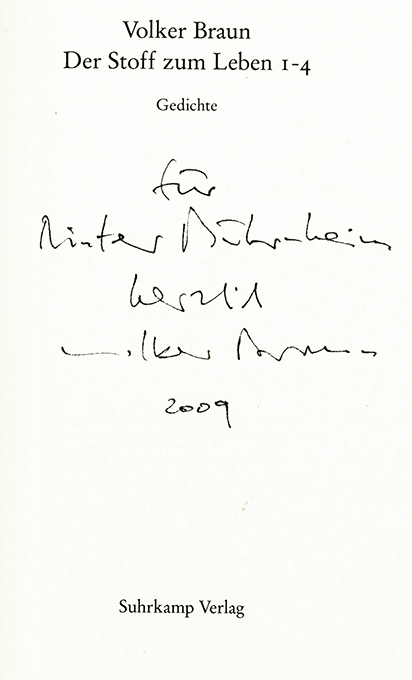 Volker Braun
Der Stoff zum Leben 1-4
Gedichte
für
herzlich
Volker Braun
2009
Suhrkamp Verlag